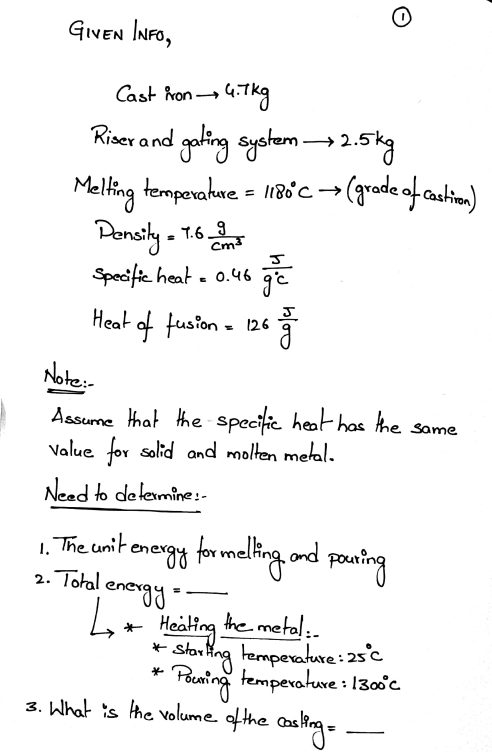 ①
GIVEN INFO,
Cast iron → 4.7kg
Riser and gating system → 2.5kg
Melting temperature = 1180°C → (grade of cast iron)
Density = 7.6 g/cm³
Specific heat = 0.46 J/g°C
Heat of fusion = 126 J/g
Note:-
Assume that the specific heat has the same
value for solid and molten metal.
Need to determine:-
1. The unit energy for melting and pouring
2. Total energy = ___
↳ * Heating the metal:-
* Starting temperature: 25°C
* Pouring temperature: 1300°C
3. What is the volume of the casting = ___